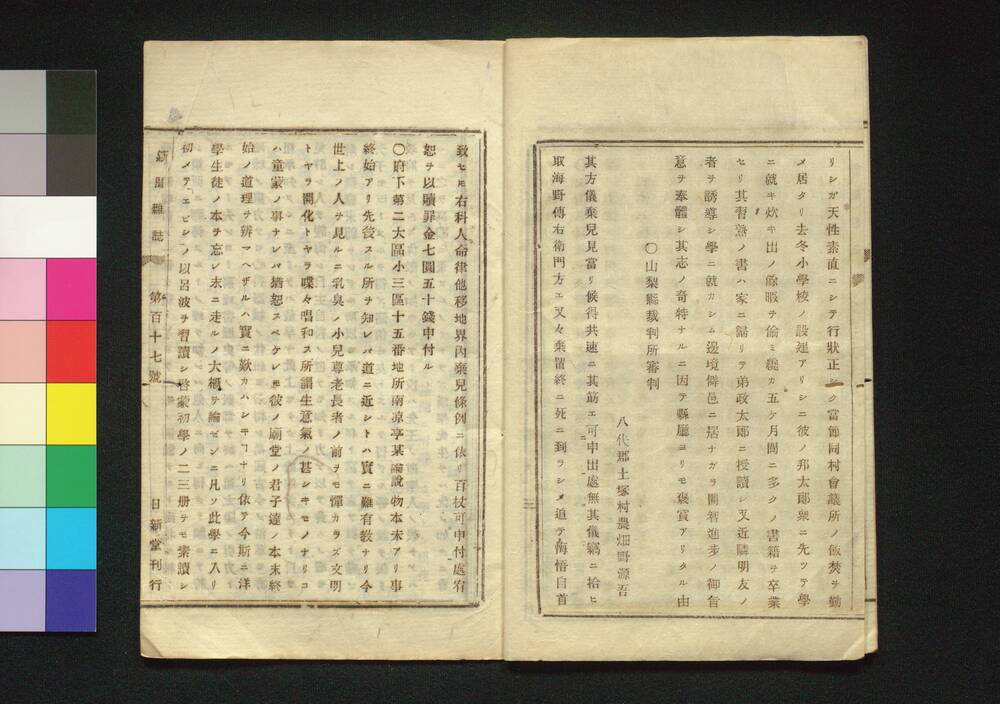 リシガ天性素直ニシテ行狀正シク當節同村會議所ノ飯焚ヲ勤
メ居タリ去冬小學校ノ設建アリシニ彼ノ邦太郞衆ニ先ツテ學
ニ就キ炊キ出ノ餘暇ヲ偸ミ纔カ五ケ月間ニ多クノ書籍ヲ卒業
セリ其習熟ノ書ハ家ニ歸リテ弟政太郞ニ授讀シ又近隣朋友ノ
者ヲ誘導シ學ニ就カシム邊境僻邑ニ居ナガラ開智進步ノ御旨
意ヲ奉體シ其志ノ奇特ナルニ因テ縣廳ヨリモ褒賞アリタル由
〇山梨縣裁判所審判
八代郡土塚村農畑野源吾
其方儀棄兒見當リ候得共速ニ其筋エ可申出處無其儀竊ニ拾ヒ
取海野傳右衛門方エ又々棄置終ニ死ニ到ラシメ追テ悔悟自首
致セモ右科人命律他移地界內棄兒條例ニ依リ百杖可申付處宥
恕ヲ以贖罪金七圓五十錢申付ル
〇府下第二大區小三區十五番地所南凉亭某論說物本末アリ事
終始アリ先後スル所ヲ知レバ道ニ近シトハ實ニ難有教ナリ今
世上ノ人ヲ見ルニ乳臭ノ小兒尊老長者ノ前ヲモ憚カラズ文明
トヤラ開化トヤラ喋々唱和ス所謂生意氣ノ甚シキモノナリコ
ハ童蒙ノ事ナレバ猶恕スベケレモ彼ノ廟堂ノ君子達ノ本末終
始ノ道理ヲ辨マヘザルハ實ニ歎カハシキヿナリ依テ今斯ニ洋
學生徒ノ本ヲ忘レ末ニ走ルノ大槪ヲ論ゼンニ凡ソ此學ニ入リ
初メテ「エビシ」ノ以呂波ヲ習讀シ啓蒙初學ノ二三册ヲモ素讀シ
新聞雜誌 第百十七號 日新堂刊行